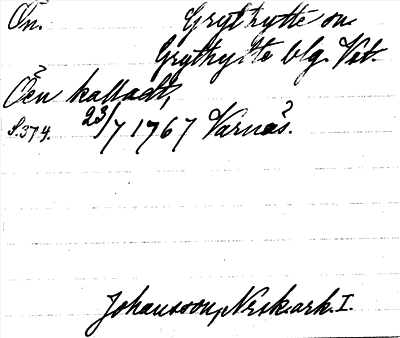 Ön. Grythytte sn
Grythytte blg. Vst.
Öen kalladt,
S. 374. 23/7 1767 Varnäs.
Johansson, Norsk. ark. I.